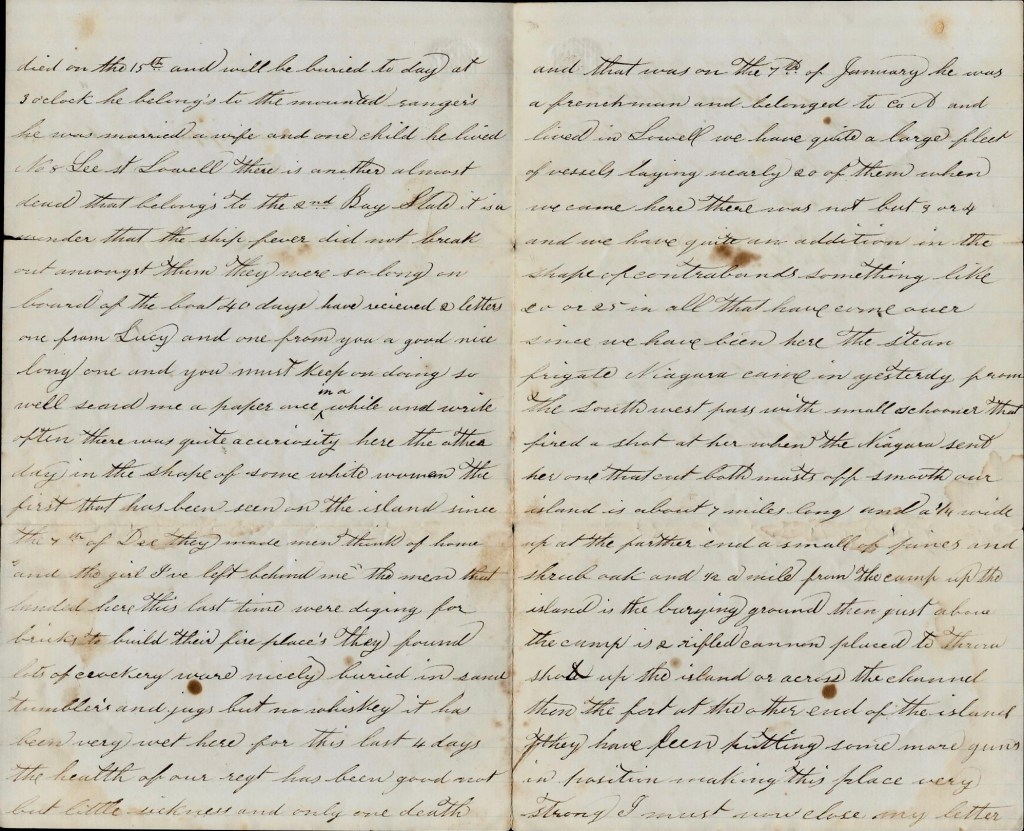 died on the 15th and will be buried to day at
3 oclock he belong's to the mounted ranger's
he was married a wife and one child he lived
No 8 Lee st Lowell there is another almost
dead that belong's to the 2nd Bay State it is a
wonder that the ship fever did not break
out amongst thum they were so long on
board of the boat 40 days have recieved 2 letters
one from Lucy and one from you a good nice
long one and you must keep on doing so
well seand me a paper once in a while and write
often there was quite a curiosity here the other
day in the shape of some white women the
first that has been seen on the island since
the 7th of Dec they made men think of home
"and the girl I've left behind me" the men that
landed here this last time were diging for
bricks to build their fire place's they found
lots of crockery ware nicely buried in sand
tumbler's and jugs but no whiskey it has
been very wet here for this last 4 days
the health of our regt has been good not
but little sickness and only one death
and that was on the 7th of January he was
a frenchman and belonged to Co A and
lived in Lowell we have quite a large fleet
of vessels laying nearly 20 of them when
we came here there was not but 3 or 4
and we have quite an addition in the
shape of contrabands something like
20 or 25 in all that have come over
since we have been here the stean
frigate Niagara came in yesterdy from
the south west pass with small schooner that
fired a shot at her when the Niagara sent
her one that cut both masts off smooth our
island is about 7 miles long and a 1/4 wide
up at the farther end a small of pines and
shrub oak and 1/2 a mile from the camp up the
island is the burying ground then just above
the camp is 2 rifled cannon placed to throw
shot up the island or across the channel
then the fort at the other end of the island
they have been putting some more guns
in position making this place very
strong I must now close my letter